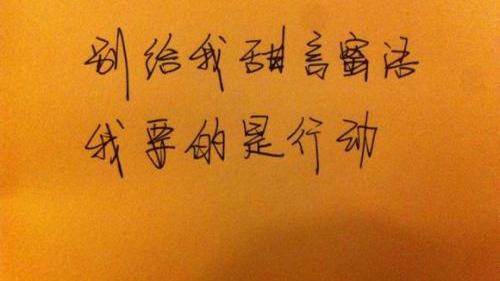 别给我甜言蜜语
我要的是行动